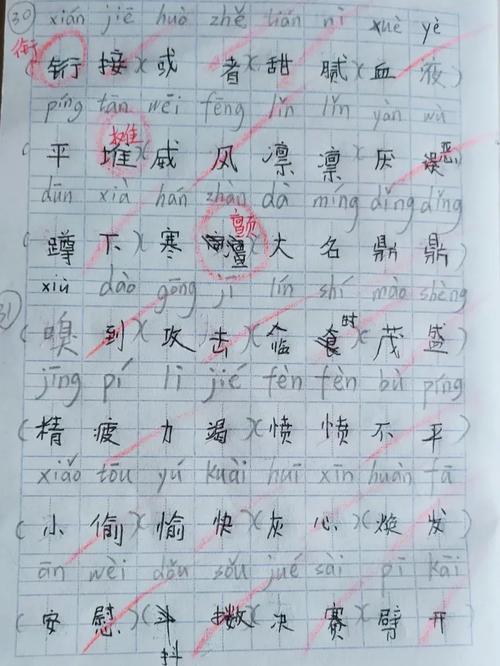 30 xián jiē huò zhě tián nì xuè yè
衔
(衔 接)(或 者)(甜 腻)(血 液)
píng tān wēi fēng lǐn lǐn yàn wù
摊 恶
(平 堆)(威 风 凛 凛)(厌 )
dūn xià hán zhàn dà míng dǐng dǐng
颤
(蹲 下)(寒 )(大 名 鼎 鼎)
xiù dào gōng jī lín shí mào shèng
31 时
(嗅 到)(攻 击)(临 )(茂 盛)
jīng pí lì jié fèn fèn bù píng
(精 疲 力 竭)(愤 愤 不 平)
xiǎo tōu yú kuài huī xīn huàn fā
(小 偷)(愉 快)(灰 心)(焕 发)
ān wèi dǒu sǒu jué sài pī kāi
(安 慰)(斗 擞)(决 赛)(劈 开)
抖